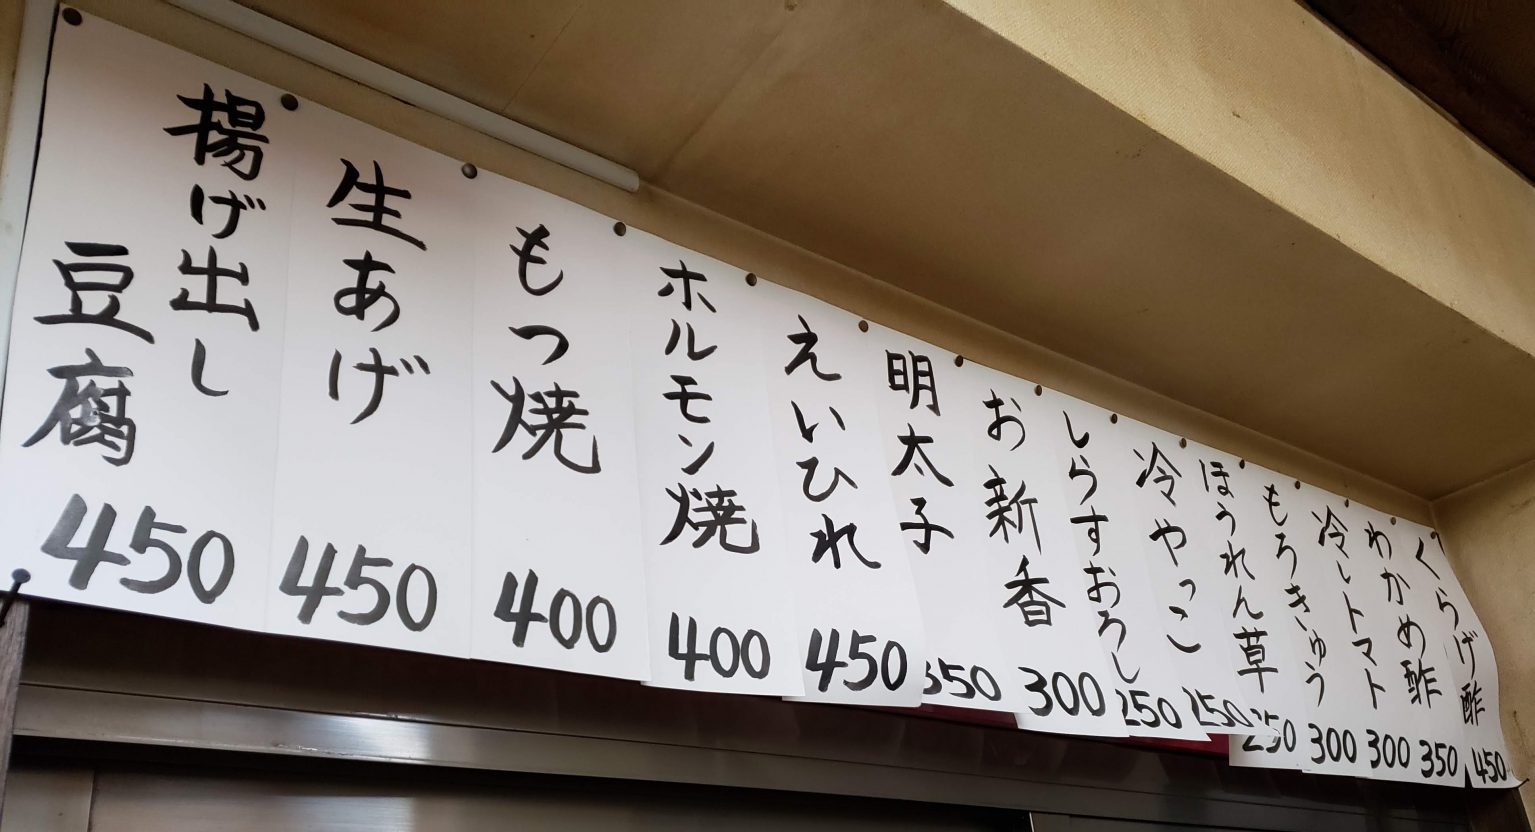 くらげ酢
450
わかめ酢
350
冷しトマト
300
もろきゅう
300
ほうれん草
250
冷やっこ
250
しらすおろし
250
お新香
300
明太子
350
えいひれ
450
ホルモン焼
400
もつ焼
400
生あげ
450
揚げ出し
豆腐
450